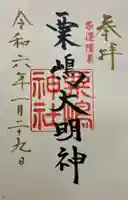 奉拝
家運隆昌
粟嶋大明神
粟嶋神社
令和六年一月二十九日